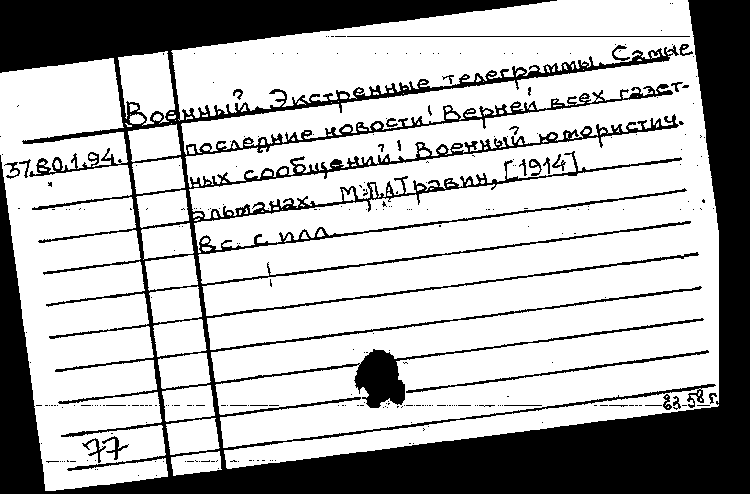 Военный. Экстренные телеграммы. Самые
последние новости! Верней всех газет-
37.80.1.94.
ных сообщений! Военный юмористич.
альманах. М., П.А. Травин, [1914].
8 с. с илл.
77